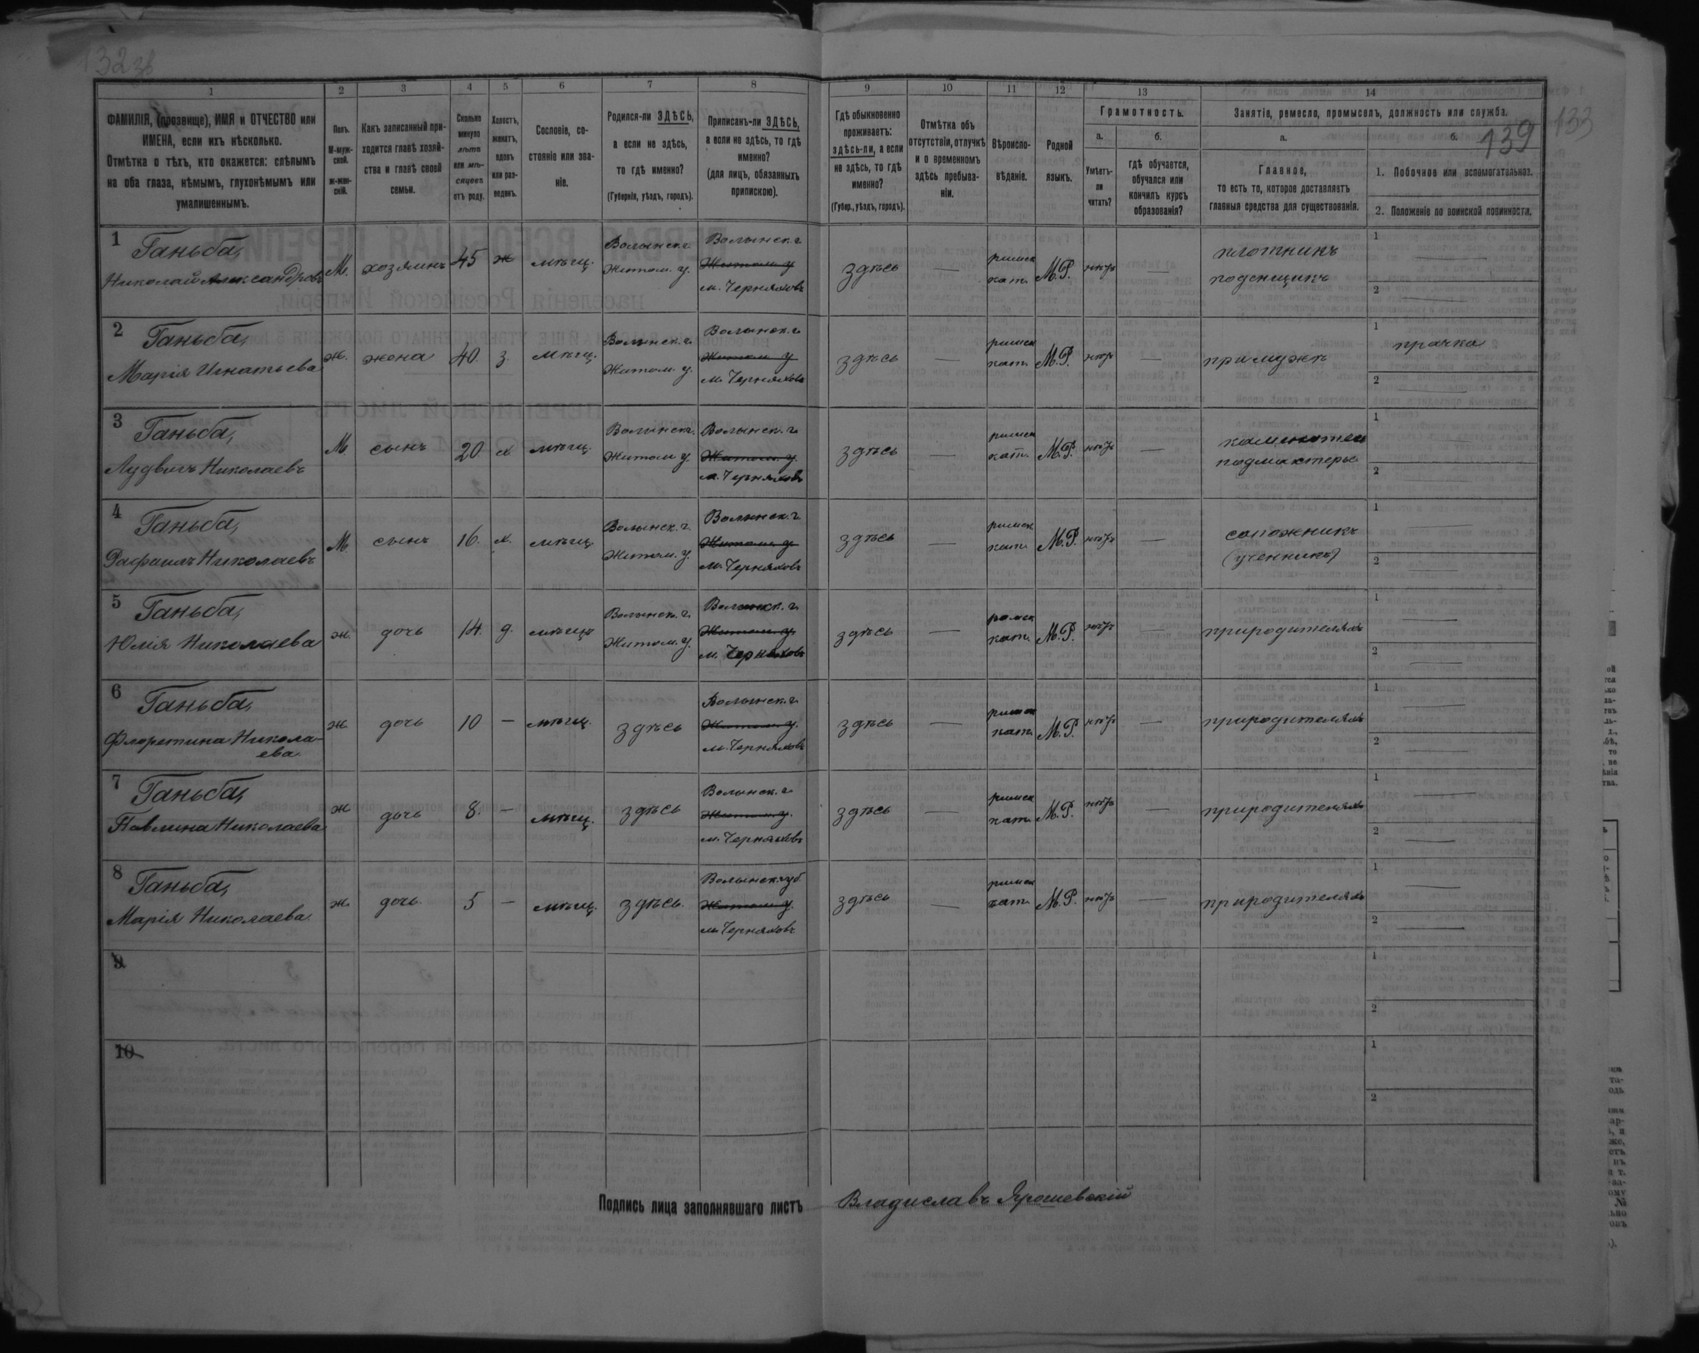 132 зв
139
133
1
2
3
4
5
6
7
8
9
10
11
12
13
14
ФАМИЛІЯ, (прозвище), ИМЯ и ОТЧЕСТВО или
ИМЕНА, если ихъ нѣсколько.
Отмѣтка о тѣхъ, кто окажется: слѣпымъ
на оба глаза, нѣмымъ, глухонѣмымъ или
умалишеннымъ.
Полъ.
М-муж-
ской.
ж-жен-
скій.
Какъ записанный при-
ходится главѣ хозяй-
ства и главѣ своей
семьи.
Сколько
минуло
лѣтъ
или мѣ-
сяцевъ
отъ роду.
Холостъ,
женатъ,
вдовъ
или раз-
веденъ.
Сословіе, со-
стояніе или зва-
ніе.
Родился-ли ЗДѢСЬ,
а если не здѣсь,
то гдѣ именно?
(Губернія, уѣздъ, городъ).
Приписанъ-ли ЗДѢСЬ,
а если не здѣсь, то гдѣ
именно?
(для лицъ, обязанныхъ
припискою).
Гдѣ обыкновенно
проживаетъ:
здѣсь-ли, а если
не здѣсь, то гдѣ
именно?
(Губер., уѣздъ, городъ).
Отмѣтка объ
отсутствіи, отлучкѣ
и о временномъ
здѣсь пребыва-
ніи.
Вѣроиспо-
вѣданіе.
Родной
языкъ.
Грамотность.
а.
Умѣетъ-
ли
читать?
б.
гдѣ обучается,
обучался или
кончилъ курсъ
образованія?
Занятіе, ремесло, промыселъ, должность или служба.
а.
Главное,
то есть то, которое доставляетъ
главныя средства для существованія.
б.
1. Побочное или вспомогательное.
2. Положеніе по воинской повинности.
1 Ганьба, Николай Александровъ М. хозяинъ 45 ж мѣщ. Волынск. г. Житом. у. Волынск. г. Житом. у м. Черняховъ здѣсь — римск кат. М.Р. нѣтъ плотникъ поденщикъ 1 2 —
2 Ганьба, Марія Игнатьева ж. жена 40 з. мѣщ. Волынск. г. Житом. у. Волынск. г. Житом. у м. Черняховъ здѣсь — римск кат. М.Р. нѣтъ — при мужѣ 1 прачка 2 —
3 Ганьба, Лудвигъ Николаевъ М сынъ 20 х мѣщ. Волынск. г. Житом у. Волынск. г. Житом. у м. Черняховъ здѣсь — римск кат. М.Р. нѣтъ — подмастерье 1 — 2 —
4 Ганьба, Рафаилъ Николаевъ М сынъ 16. х. мѣщ. Волынск. г. Житом. у. Волынск. г Житом. у м. Черняховъ здѣсь — римск кат. М.Р. нѣтъ — сапожникъ (ученикъ) 1 — 2 —
5 Ганьба, Юлія Николаева ж. дочь 14. д. мѣщ. Волынск. г. Житом. у. Волынск. г. Житом. у м. Черняховъ здѣсь — римск кат. М.Р. нѣтъ — при родителяхъ 1 — 2 —
6 Ганьба, Флорентина Никола- ева ж. дочь 10 — мѣщ. здѣсь Волынск. г. Житом. у. м. Черняховъ здѣсь — римск кат. М.Р. нѣтъ — при родителяхъ 1 — 2 —
7 Ганьба, Павлина Николаева ж дочь 8. — мѣщ. здѣсь Волынск. г. Житом. у. м. Черняховъ здѣсь — римск кат. М.Р. нѣтъ — при родителяхъ 1 — 2 —
8 Ганьба, Марія Николаева ж. дочь 5 — мѣщ. здѣсь Волынск губ Житом у. м. Черняховъ здѣсь — римск кат. М.Р. нѣтъ — при родителяхъ 1 — 2 —
9 1 2
10 1 2
Подпись лица заполнявшаго листъ Владиславъ Ярошевскій